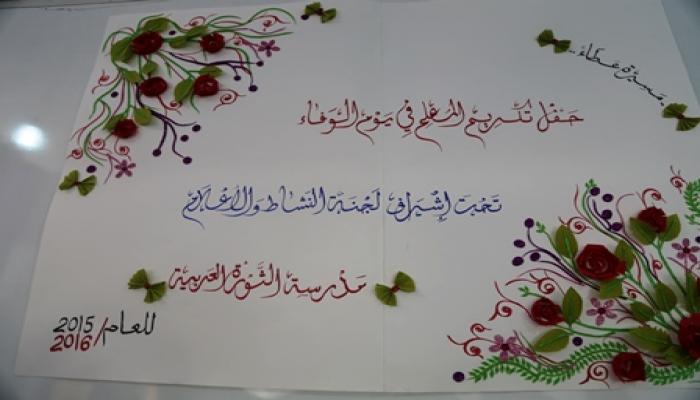 مسيرة عطاء..
حفل تكريم المعلم في يوم الوفاء
تحت إشراف لجنة النشاط والإعلام
مدرسة الثورة العربية
للعام / 2015
2016